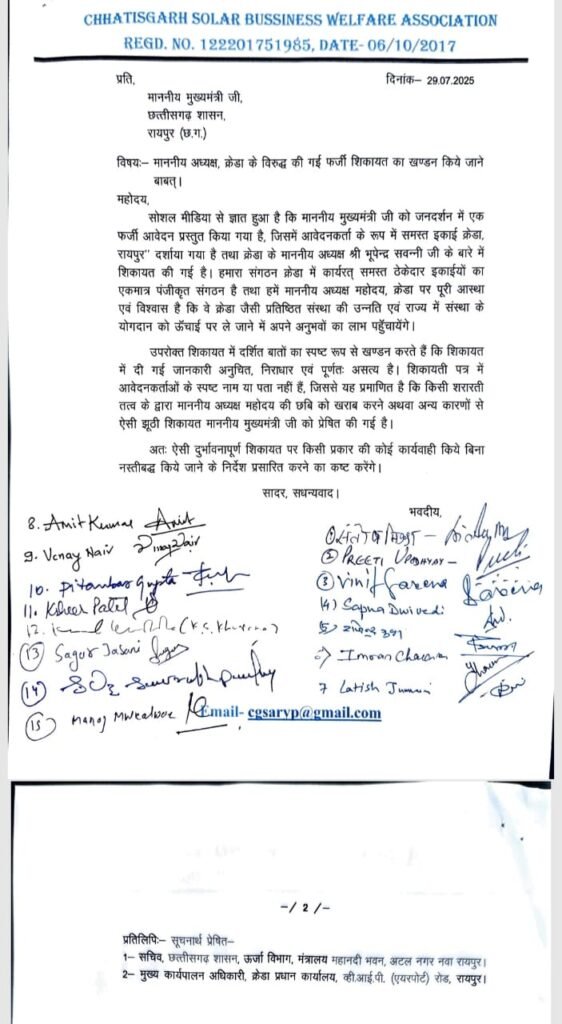 CHHATISGARH SOLAR BUSSINESS WELFARE ASSOCIATION
REGD. NO. 122201751985, DATE- 06/10/2017
प्रति,
दिनांक– 29.07.2025
माननीय मुख्यमंत्री जी,
छत्तीसगढ़ शासन,
रायपुर (छ.ग.)
विषयः– माननीय अध्यक्ष, क्रेडा के विरुद्ध की गई फर्जी शिकायत का खण्डन किये जाने
बाबत्।
महोदय,
सोशल मीडिया से ज्ञात हुआ है कि माननीय मुख्यमंत्री जी को जनदर्शन में एक
फर्जी आवेदन प्रस्तुत किया गया है, जिसमें आवेदनकर्ता के रूप में समस्त इकाई क्रेडा,
रायपुर" दर्शाया गया है तथा क्रेडा के माननीय अध्यक्ष श्री भूपेन्द्र सवन्नी जी के बारे में
शिकायत की गई है। हमारा संगठन क्रेडा में कार्यरत् समस्त ठेकेदार इकाईयों का
एकमात्र पंजीकृत संगठन है तथा हमें माननीय अध्यक्ष महोदय, क्रेडा पर पूरी आस्था
एवं विश्वास है कि वे क्रेडा जैसी प्रतिष्ठित संस्था की उन्नति एवं राज्य में संस्था के
योगदान को ऊँचाई पर ले जाने में अपने अनुभवों का लाभ पहुँचायेंगे।
उपरोक्त शिकायत में दर्शित बातों का स्पष्ट रूप से खण्डन करते हैं कि शिकायत
में दी गई जानकारी अनुचित, निराधार एवं पूर्णतः असत्य है। शिकायती पत्र में
आवेदनकर्ताओं के स्पष्ट नाम या पता नहीं हैं, जिससे यह प्रमाणित है कि किसी शरारती
तत्व के द्वारा माननीय अध्यक्ष महोदय की छबि को खराब करने अथवा अन्य कारणों से
ऐसी झूठी शिकायत माननीय मुख्यमंत्री जी को प्रेषित की गई है।
अतः ऐसी दुर्भावनापूर्ण शिकायत पर किसी प्रकार की कोई कार्यवाही किये बिना
नस्तीबद्ध किये जाने के निर्देश प्रसारित करने का कष्ट करेंगे।
सादर, सधन्यवाद।
भवदीय,
① संतोष मिश्रा –
② PREETI UPADHYAY –
③ Vinit
(4) Sapna Dwivedi
6) Imran
7 Latish
8. Amit Kumar Amit
9. Vinay Nair
10. Pitambar Gupta
11. Patel
12. (K.S.
13 Sagar Jasani
14
15 Manoj
Email- cgsarvp@gmail.com
-/ 2 /-
प्रतिलिपिः– सूचनार्थ प्रेषित–
1– सचिव, छत्तीसगढ़ शासन, ऊर्जा विभाग, मंत्रालय महानदी भवन, अटल नगर नवा रायपुर।
2– मुख्य कार्यपालन अधिकारी, क्रेडा प्रधान कार्यालय, व्ही.आई.पी. (एयरपोर्ट) रोड, रायपुर।